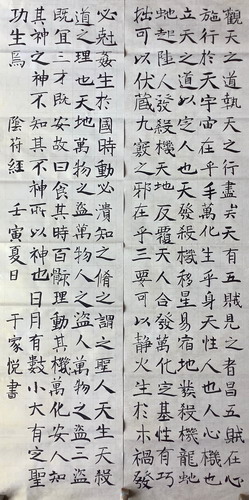 觀天之道執天之行盡矣天有五賊見之者昌五賊在心
施行於天宇宙在乎手萬化生乎身天性人也人心機也
立天之道以定人也天發殺機移星易宿地發殺機龍
蛇起陸人發殺機天地反覆天人合發萬化定基性有巧
拙可以伏藏九竅之邪在乎三要可以靜火生於木禍發
必剋姦生於國時動必潰知之脩之謂之聖人天生天殺
道之理也天地萬物之盜萬物人之盜人萬物之盜三盜
既宜三才既安故曰食其時百骸理動其機萬化安人知
其神之神不知其不神所以神也日月有數小大有之聖
功生焉 陰符經 壬寅夏日 于家悅書